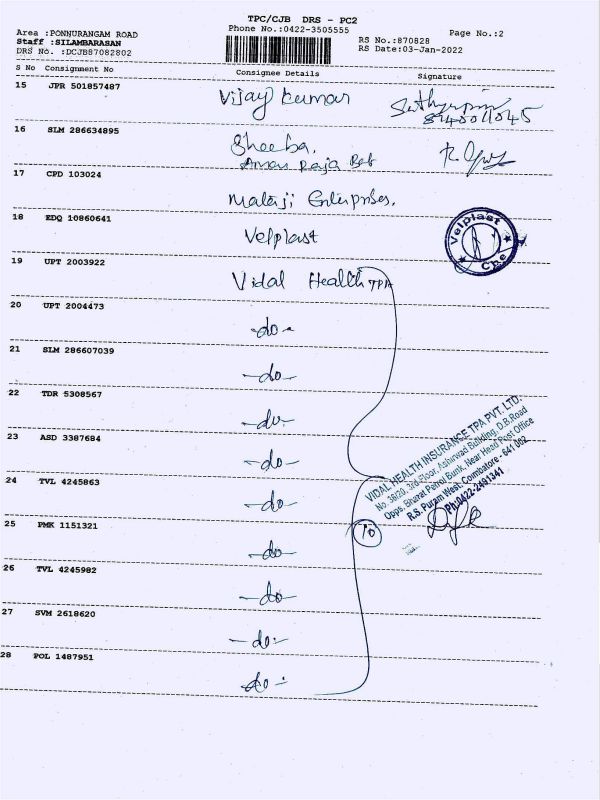 TPC/CJB DRS - PC2
Phone No.:0422-3505555
Page No.:2
Area :PONNURANGAM ROAD
Staff :SILAMBARASAN
DRS No. :DCJB87082802
RS No.:870828
RS Date:03-Jan-2022
S No Consignment No Consignee Details Signature
15 JPR 501857487 Vijay kumar
16 SLM 286634895 Sheeba.
Raja
17 CPD 103024 Malaji Enterprises.
18 EDQ 10860641 Velplast
Velplast
Cbe
19 UPT 2003922 Vidal Health TPA
20 UPT 2004473 -do-
21 SLM 286607039 -do-
22 TDR 5308567 -do-
23 ASD 3387684 -do-
24 TVL 4245863 -do-
25 PMK 1151321 -do-
26 TVL 4245982 -do-
27 SVM 2618620 -do-
28 POL 1487951 -do-
10
VIDAL HEALTH INSURANCE TPA PVT. LTD.
No. 38/20, 3rd Floor, Ashirvad Building, D.B.Road
Opps. Bharat Petrol Bunk, Near Head Post Office
R.S. Puram West, Coimbatore - 641 002
Ph:0422-2491341